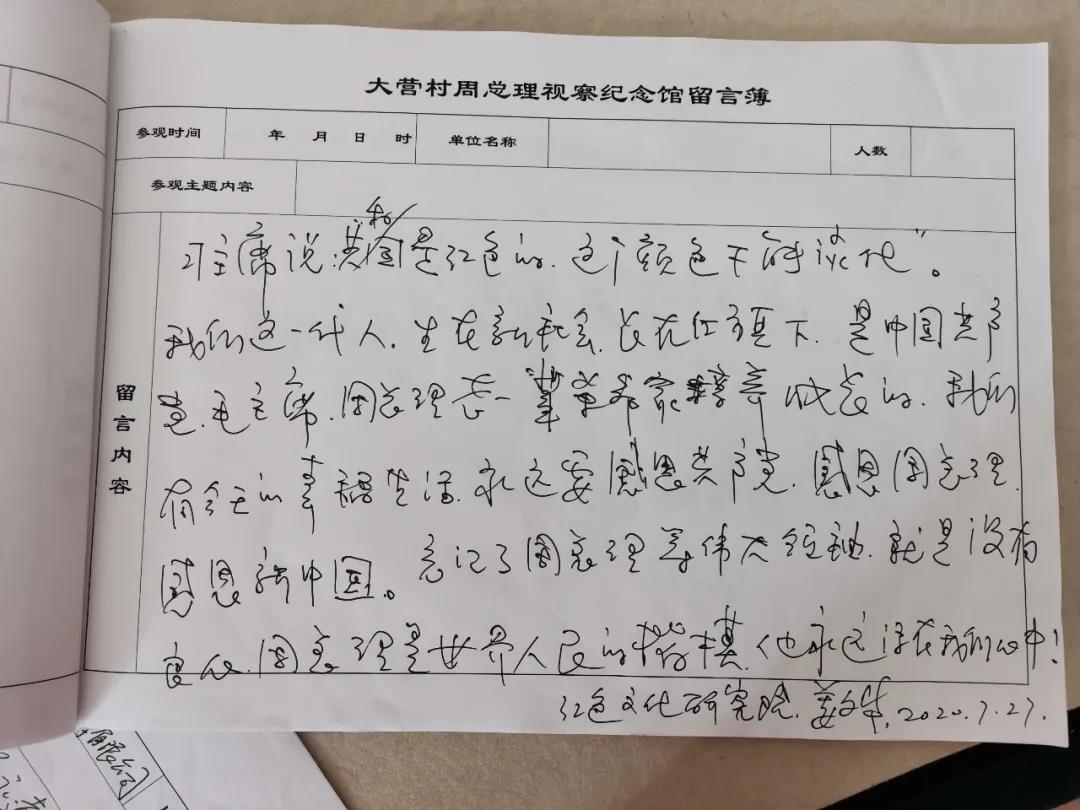 大营村周总理视察纪念馆留言簿
参观时间 年 月 日 时 单位名称 人数
参观主题内容
留言内容
习主席说:"共和国是红色的、这个颜色不能淡化"。
我们这一代人、生在新社会、长在红旗下、是中国共产
党、毛主席、周总理老一辈革命家培养成长的、我们
有今天的幸福生活、永远要感恩共产党、感恩周总理、
感恩新中国。忘记了周总理等伟大领袖、就是没有
良心、周总理是世界人民的楷模、他永远活在我们心中!
红色文化研究院、姜文华、2020.7.27.
有限公司